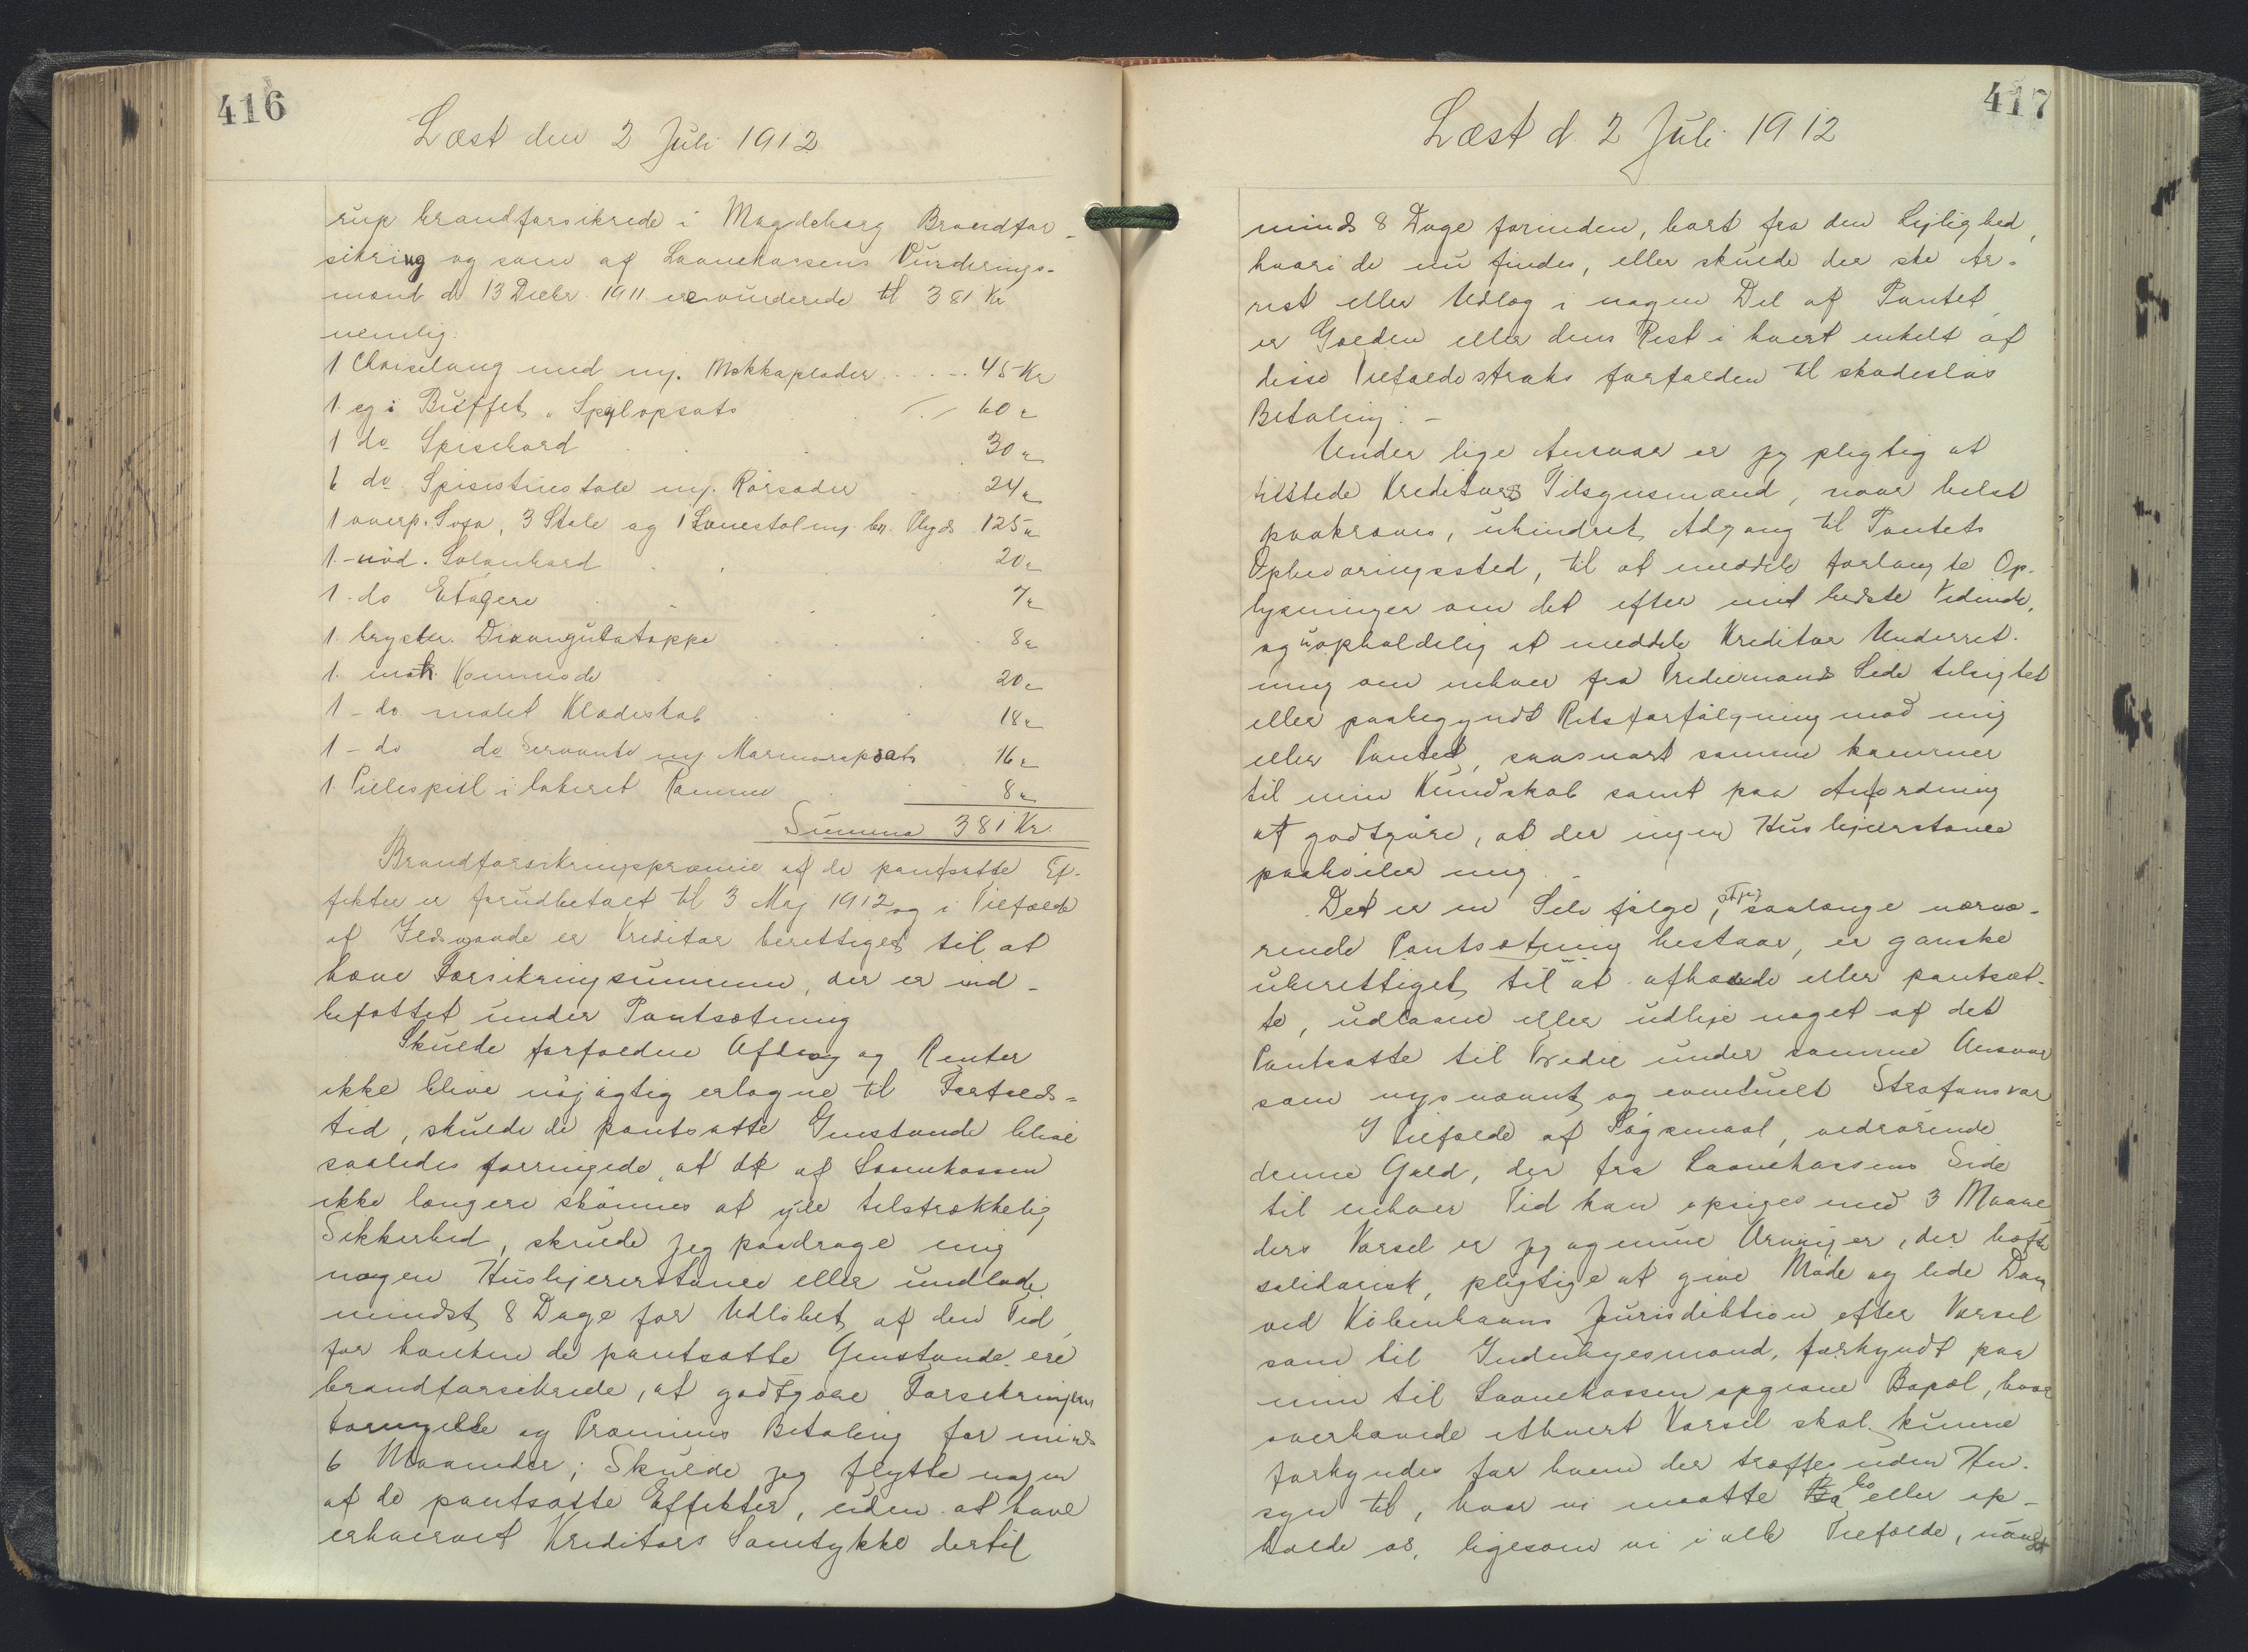 416
Læst den 2 Juli 1912
rup brandforsikrede i Magdeborg Brandfor-
sikring og som af Laanekassens Vurderings-
mænd d 13 Decbr. 1911 ere vurderede til 381 Kr
nemlig:
1 Chaiselong med ny. Mekkaplader 45 Kr
1 eg i Buffet " Spejlopsats 60 "
1 do Spisebord 30 "
6 do Spisestuestole my. Rørsæder 24 "
1 overp. Sofa, 3 Stole og 1 Lænestol my. br. Plyds 125 "
1 - nød. Salonbord 20 "
1 do Etagere 7 "
1 Divangulvtæppe 8 "
1 mah. Kommode 20 "
1 - do malet Klædeskab 18 "
1 - do do Servante my Marmoropsats 16 "
1 Pillespejl i lakeret Ramme 8 "
Summa 381 Kr.
Brandforsikringspræmie af de pantsatte Ef-
fekter er forudbetalt til 3 Maj 1912 og i Tilfælde
af Ildsvaade er Kreditor berettiget til at
hæve Forsikringsummen, der er ind-
befattet under Pantsætning
Skulde forfaldne Afdrag og Renter
ikke blive nøjagtig erlagne til Forfalds-
tid, skulde de pantsatte Genstande blive
saaledes forringede, at de af Laanekassen
ikke længere skønnes at yde tilstrækkelig
Sikkerhed, skulde jeg paadrage mig
nogen Husbjererstance eller undlade
mindst 8 Dage før Udløbet af den Tid,
for hvilken de pantsatte Genstande ere
brandforsikrede, at godtgøre Forsikringens
Fornyelse og Præmiens Betaling for minds
6 Maaneder; Skulde jeg flytte nogen
af de pantsatte Effekter, uden at have
erhvervet Kreditors Samtykke dertil
417
Læst d. 2 Juli 1912
minds 8 Dage forinden, bort fra den Lejlighed,
hvori de nu findes, eller skulde der ske Ar-
rest eller Udlæg i nogen Del af Pantet,
er Gælden eller dens Rest i hvert enkelt af
disse Tilfælde straks forfalden til skadesløs
Betaling. -
Under lige Ansvar er jeg pligtig at
tilstede Kreditors Tilsynsmænd, naar helst
paakræves, uhindret Adgang til Pantets
Opbevaringssted, til at meddele forlangte Op-
lysninger om det efter mit bedste Vidende,
og uopholdelig at meddele Kreditor Underret-
ning om enhver fra Trediemands Side tilsigtet
eller paabegyndt Retsforfølgning mod mig
eller Pantet, saasnart samme kommer
til min Kundskab samt paa Anfordning
at godtgøre, at der ingen Husbjærstance
paahviler mig. -
Det er en Selv følge, at jeg saalænge nærvæ-
rende Pantsætning bestaar, er ganske
uberettiget til at afhænde eller pantsæt-
te, udlaane eller udleje noget af det
Pantsatte til Tredie under samme Ansvar
som nysnævnt og eventuelt Strafansvar
I Tilfælde af Søgsmaal, vedrørende
denne Gæld, der fra Laanekassens Side
til enhver Tid kan opsiges med 3 Maane
ders Varsel er jeg og mine Arvinger, der hæfte
solidarisk, pligtige at give Møde og lide Dom
ved Københavns Jurisdiktion efter Varsel
som til Indenbyesmand, forkyndt paa
min til Laanekassen opgivne Bopæl, hvor
overhovede ethvert Varsel skal kunne
forkyndes for hvem der træffes uden Hen-
syn til, hvor vi maatte bo eller op-
holde os, ligesom vi i alle Tilfælde,